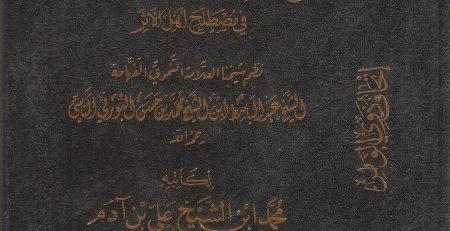 في مصطلح أهل الأثر
نظم شيخنا العلامة اللغوي الفهامة
الشيخ عبد الباسط ابن الشيخ محمد بن حسن البورني المناسي
رحمه الله
لكاتبه
محمد ابن الشيخ علي بن آدم